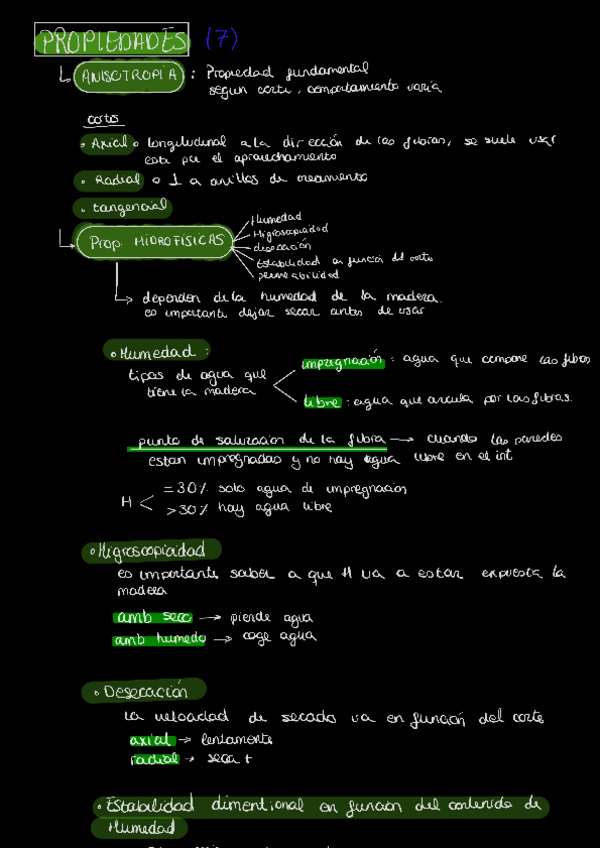 PROPIEDADES (7)
ANISOTROPÍA : Propiedad fundamental
segun corte, comportamiento varía
cortes
• Axial o longitudinal a la dirección de las fibras, se suele usar
este por el aprovechamiento
• Radial o ⊥ a anillos de crecimiento
• tangencial
Prop. HIDROFÍSICAS
Humedad
Higroscopicidad
desecación
Estabilidad en función del corte
permeabilidad
dependen de la humedad de la madera.
es importante dejar secar antes de usar
• Humedad :
tipos de agua que
tiene la madera
impregnación : agua que compone las fibras
libre : agua que circula por las fibras.
punto de saturación de la fibra → cuando las paredes
estan impregnadas y no hay agua libre en el int
H
= 30% solo agua de impregnacion
> 30% hay agua libre
• Higroscopicidad
es importante saber a que H va a estar expuesta la
madera
amb seco → pierde agua
amb humedo → coge agua
• Desecación
La velocidad de secado va en función del corte
axial → lentamente
radial → seca +
• Estabilidad dimentional en funcion del contenido de
Humedad